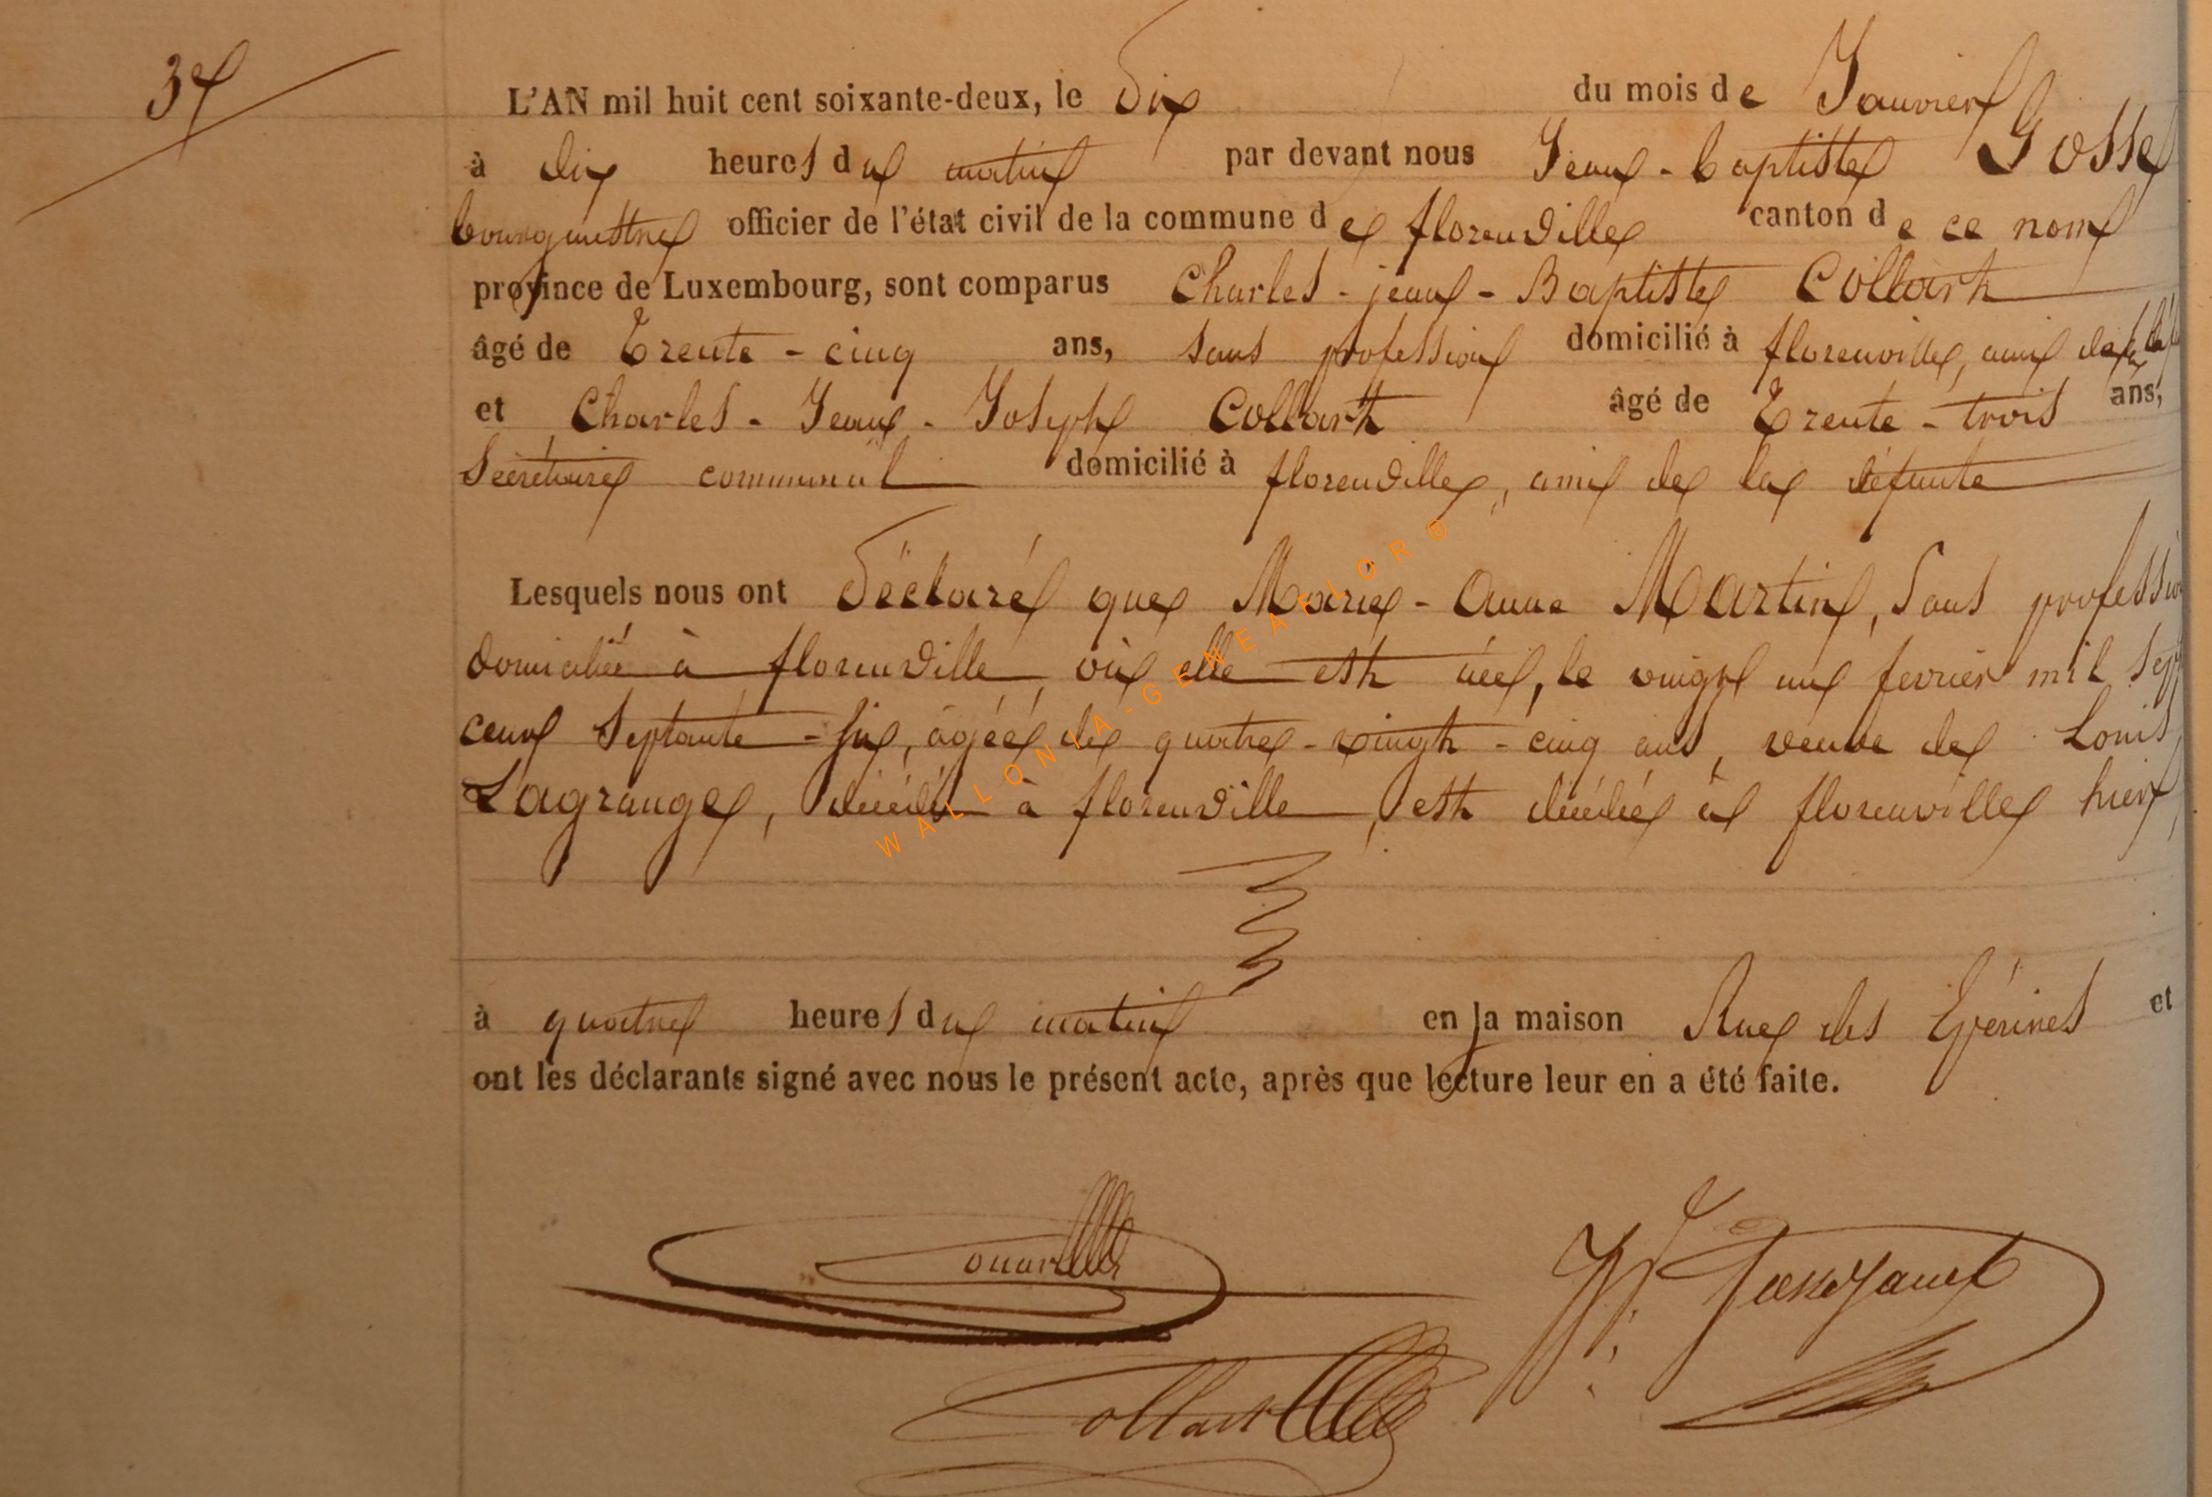 3e
L'AN mil huit cent soixante-deux, le Dix du mois de Janvier
à dix heures du matin par devant nous Jean-baptiste Gosse
bourgmestre officier de l'état civil de la commune de florenville canton de ce nom
province de Luxembourg, sont comparus Charles-jean-Baptiste Collart
âgé de Trente-cinq ans, sans profession domicilié à florenville, ami de la
et Charles-Jean-Joseph Collart âgé de Trente-trois ans,
Secrétaire communal domicilié à florenville, ami de la défunte
Lesquels nous ont Déclaré que Marie-Anne Martin, Sans profession
domiciliée à florenville, où elle est née, le vingt un fevrier mil Sept
cent Septante-Six, âgée de quatre-vingt-cinq ans, veuve de Louis
Lagrange, décédé à florenville, est décédée à florenville hier,
à quatre heures du matin en la maison Rue des Epérines et
ont les déclarants signé avec nous le présent acte, après que lecture leur en a été faite.
Collart
WALLONIA-GENEALOR©